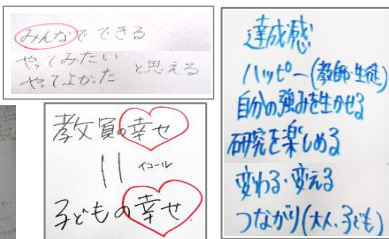 みんなでできる
やってみたい
やってよかった と思える
教員の幸せ
|| イコール
子どもの幸せ
達成感
ハッピー(教師・生徒)
自分の強みを生かせる
研究を楽しめる
変わる・変える
つながり(大人、子ども)